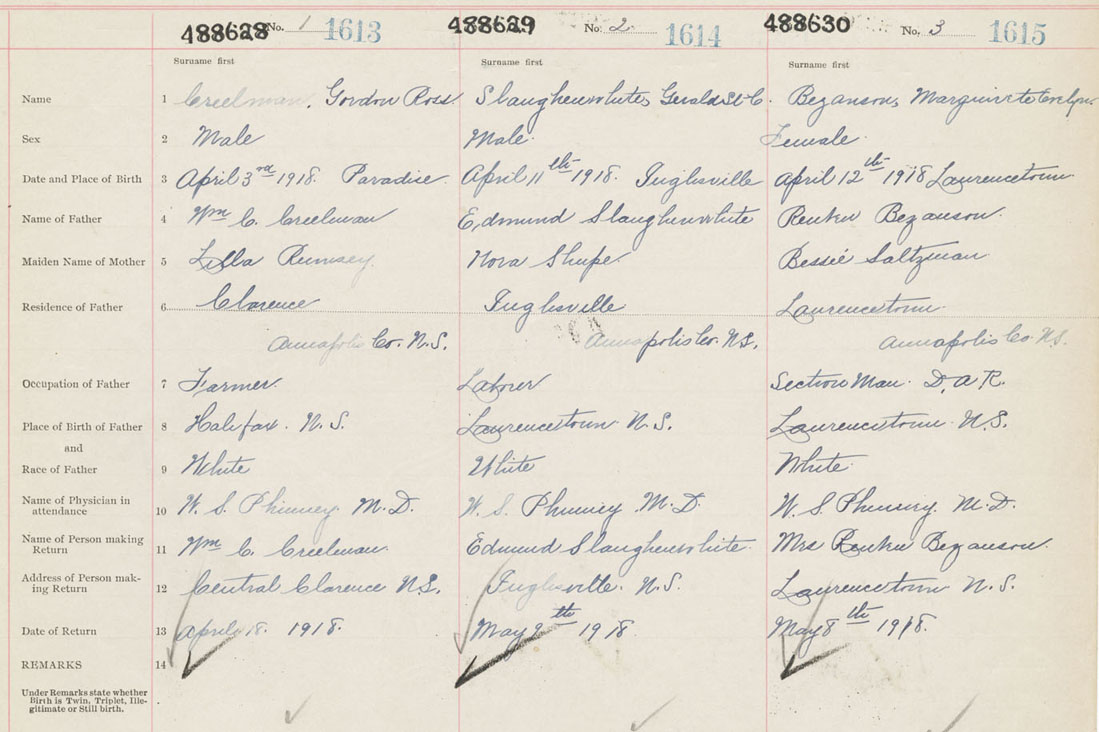 488628 No. 1 1613 488629 No. 2 1614 488630 No. 3 1615
Surname first Surname first Surname first
Name 1 Creelman, Gordon Ross Slaughenwhite, Gerald St C. Bezanson, Marguirete Evelyn
Sex 2 Male Male Female
Date and Place of Birth 3 April 3rd 1918. Paradise April 11th 1918. Inglisville April 12th 1918 Laurencetown
Name of Father 4 Wm C. Creelman Edmund Slaughenwhite Bezanson.
Maiden Name of Mother 5 Lilla Rumsey Nora Shupe Bessie Saltzman
Residence of Father 6 Clarence Inglisville Laurencetown
Annapolis Co. N.S. Annapolis Co. N.S. Annapolis Co. N.S.
Occupation of Father 7 Farmer Laborer Section Man. D.A.R.
Place of Birth of Father 8 Halifax. N.S. Laurencetown N.S. Laurencetown N.S.
and
Race of Father 9 White White White
Name of Physician in
attendance 10 W. S. Phinney M.D. W. S. Phinney M.D. W. S. Phinney M.D.
Name of Person making
Return 11 Wm C. Creelman Edmund Slaughenwhite Mrs Bezanson.
Address of Person mak-
ing Return 12 Central Clarence N.S. Inglisville. N.S. Laurencetown N.S.
Date of Return 13 April 18. 1918. May 2th 1918 May 8th 1918.
REMARKS 14
Under Remarks state whether
Birth is Twin, Triplet, Ille-
gitimate or Still birth.